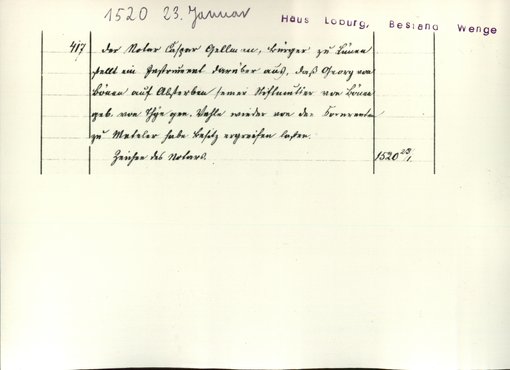 1520 23. Januar
Haus Loburg, Bestand Wenge
417 Der Notar Caspar Gellman, Bürger zu Lünen
stellt ein Instrument darüber aus, daß Georg von
Bönen auf Absterben seiner Stiefmutter von Bönen
geb. von gen. Vehle wieder von der
zu Metelen habe Besitz ergreifen lassen.
Zeichen des Notars. 1520 23/1.